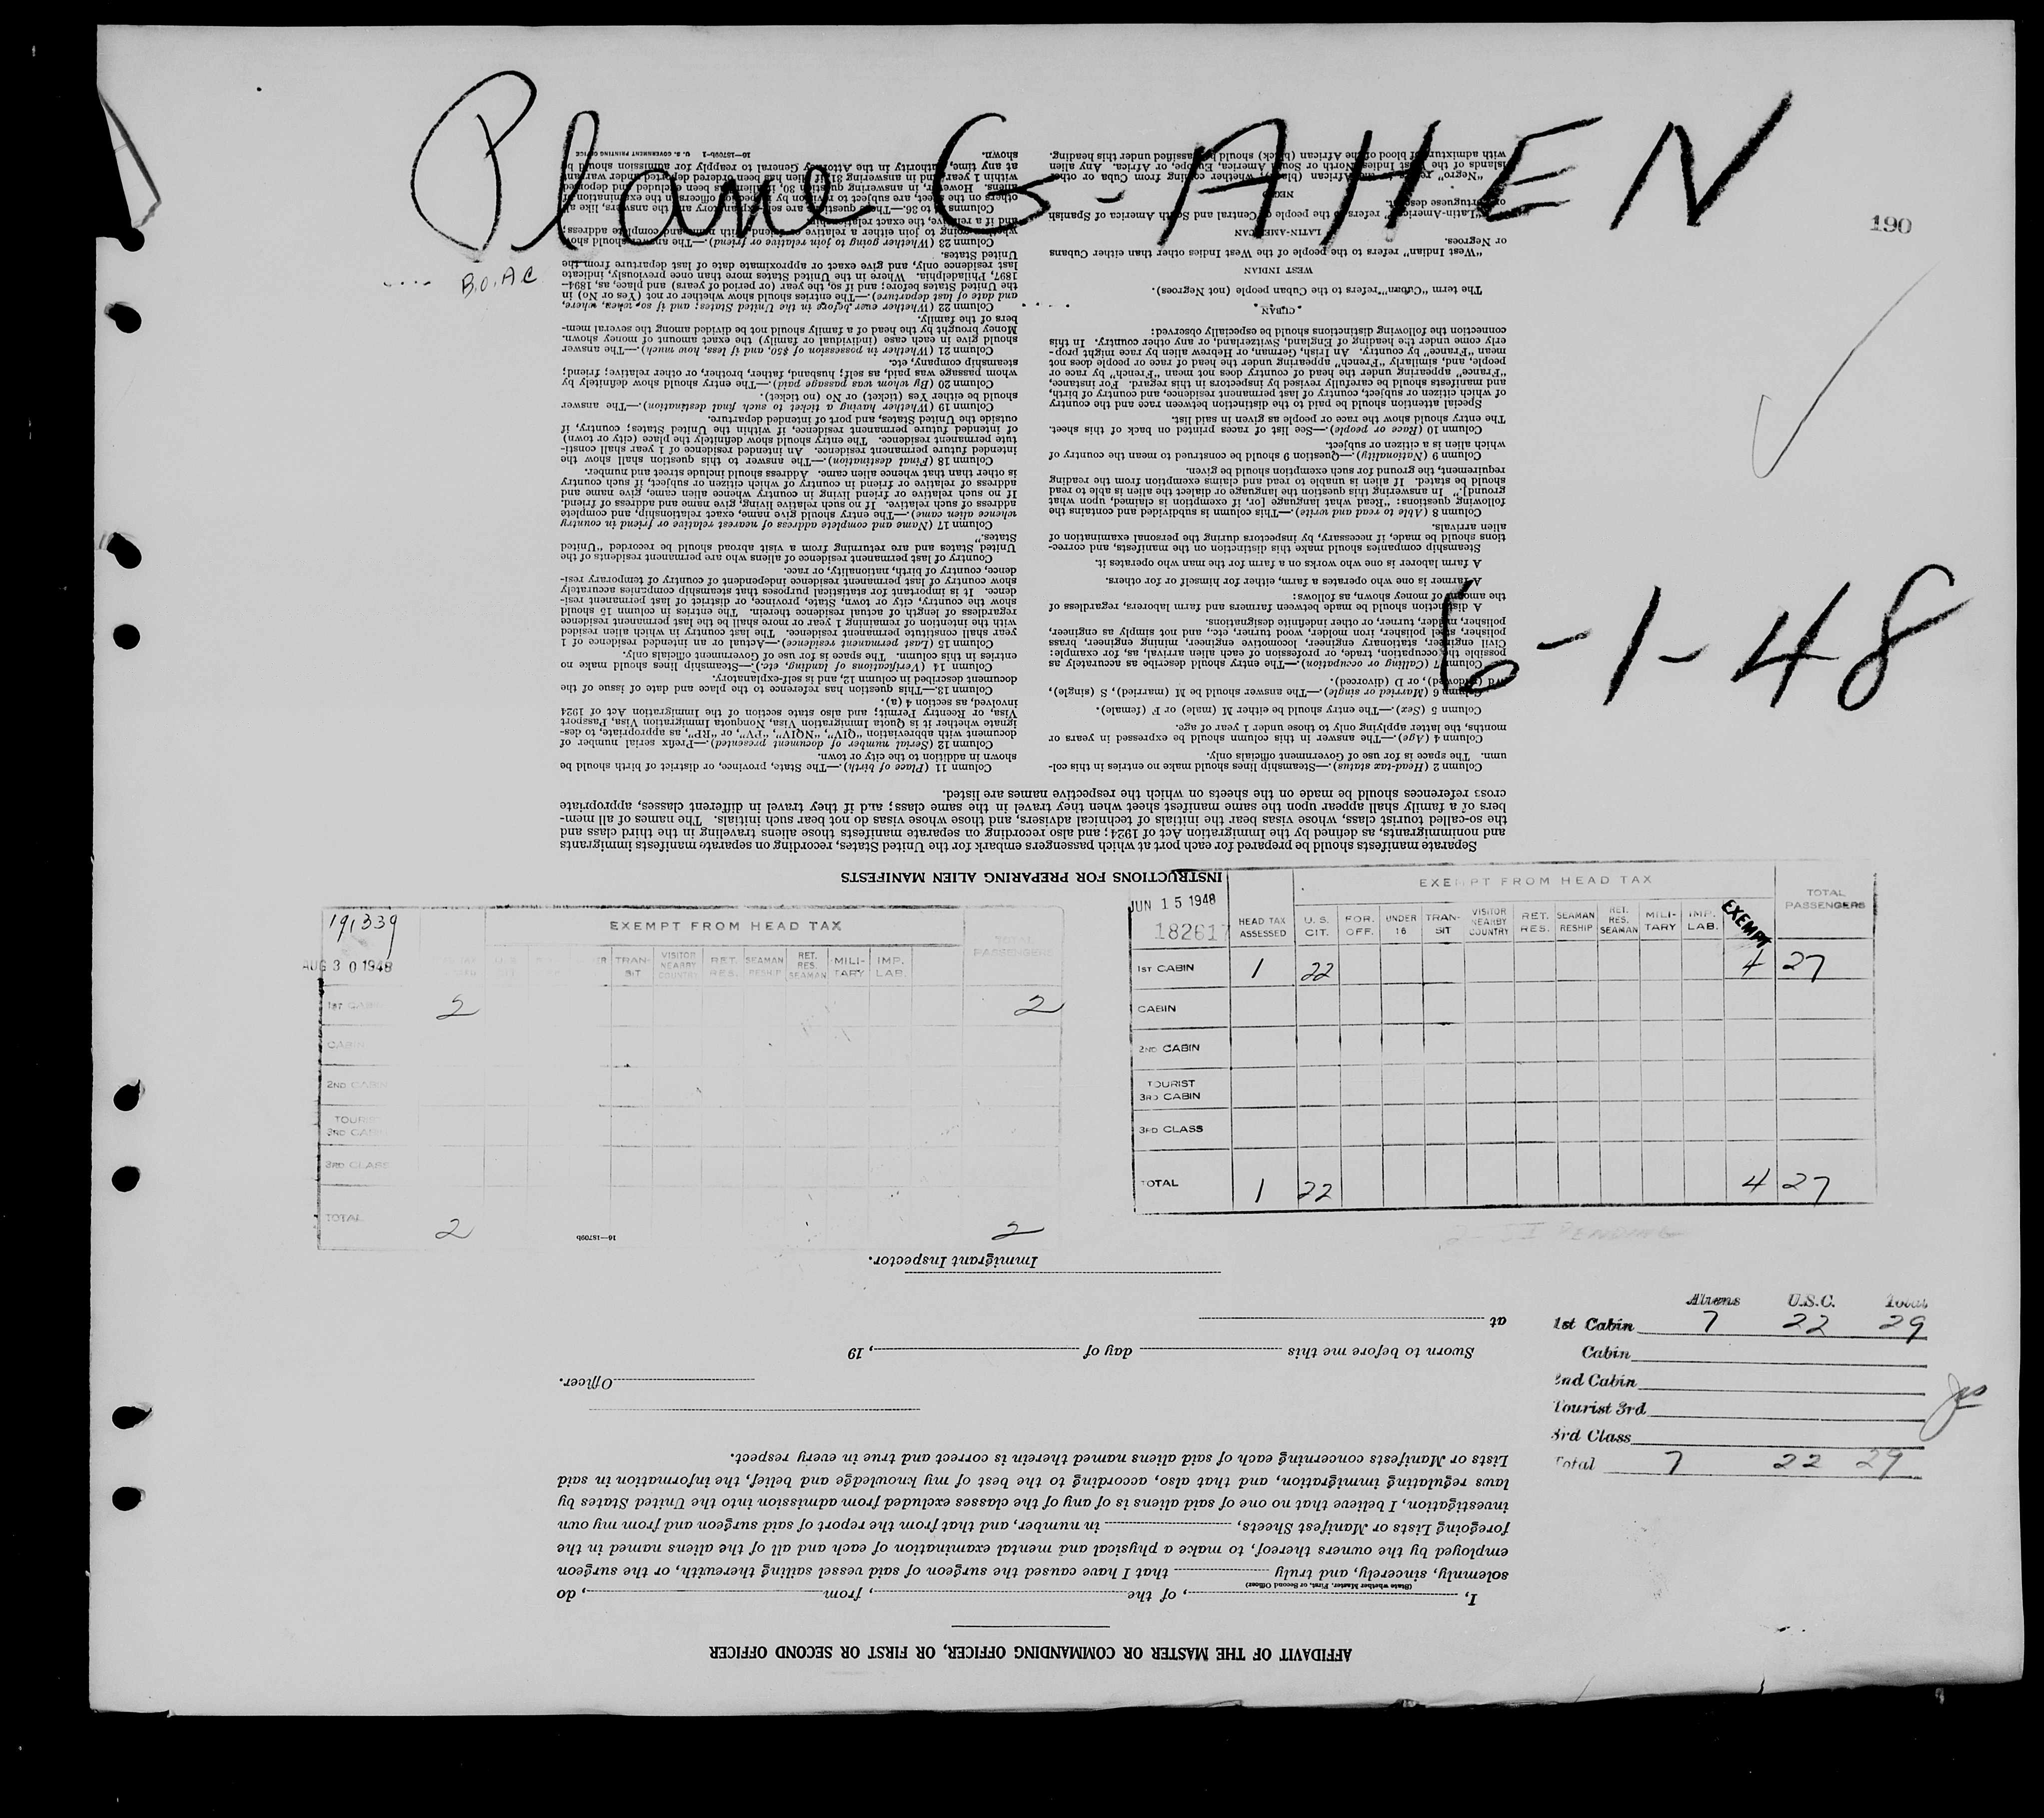 Plane G-AHEN
190
B.O.A.C.
6-1-48
191339
AUG 30 1948
EXEMPT FROM HEAD TAX
TOTAL PASSENGERS
TRAN-SIT
VISITOR NEARBY COUNTRY
RET. RES.
SEAMAN RESHIP
RET. RES. SEAMAN
MILI-TARY
IMP. LAB.
1ST CABIN 2 2
CABIN
2ND CABIN
TOURIST
3RD CABIN
3RD CLASS
TOTAL 2 2
JUN 15 1948
182617
EXEMPT FROM HEAD TAX
HEAD TAX ASSESSED
U. S. CIT.
FOR. OFF.
UNDER 16
TRAN-SIT
VISITOR NEARBY COUNTRY
RET. RES.
SEAMAN RESHIP
RET. RES. SEAMAN
MILI-TARY
IMP. LAB.
EXEMPT
TOTAL PASSENGERS
1ST CABIN 1 22 4 27
CABIN
2ND CABIN
TOURIST
3RD CABIN
3RD CLASS
TOTAL 1 22 4 27
2 - SI PENDING
Aliens U.S.C. Total
1st Cabin 7 22 29
Cabin
2nd Cabin
Tourist 3rd
3rd Class
Total 7 22 29
AFFIDAVIT OF THE MASTER OR COMMANDING OFFICER, OR FIRST OR SECOND OFFICER
I, , of the , from , do
(State whether Master, First, or Second Officer)
solemnly, sincerely, and truly that I have caused the surgeon of said vessel sailing therewith, or the surgeon
employed by the owners thereof, to make a physical and mental examination of each and all of the aliens named in the
foregoing Lists or Manifest Sheets, in number, and that from the report of said surgeon and from my own
investigation, I believe that no one of said aliens is of any of the classes excluded from admission into the United States by
laws regulating immigration, and that also, according to the best of my knowledge and belief, the information in said
Lists or Manifests concerning each of said aliens named therein is correct and true in every respect.
Officer.
Sworn to before me this day of , 19
at
Immigrant Inspector.
16—15709b
INSTRUCTIONS FOR PREPARING ALIEN MANIFESTS
Separate manifests should be prepared for each port at which passengers embark for the United States, recording on separate manifests immigrants
and nonimmigrants, as defined by the Immigration Act of 1924; and also recording on separate manifests those aliens traveling in the third class and
the so-called tourist class, whose visas bear the initials of technical advisers, and those whose visas do not bear such initials. The names of all mem-
bers of a family shall appear upon the same manifest sheet when they travel in the same class; and if they travel in different classes, appropriate
cross references should be made on the sheets on which the respective names are listed.
Column 2 (Head-tax status).—Steamship lines should make no entries in this col-
umn. The space is for use of Government officials only.
Column 4 (Age).—The answer in this column should be expressed in years or
months, the latter applying only to those under 1 year of age.
Column 5 (Sex).—The entry should be either M (male) or F (female).
Column 6 (Married or single).—The answer should be M (married), S (single),
Wd (widowed), or D (divorced).
Column 7 (Calling or occupation).—The entry should describe as accurately as
possible the occupation, trade, or profession of each alien arrival, as, for example:
Civil engineer, stationary engineer, locomotive engineer, mining engineer, brass
polisher, steel polisher, iron molder, wood turner, etc., and not simply as engineer,
polisher, molder, turner, or other indefinite designations.
A distinction should be made between farmers and farm laborers, regardless of
the amount of money shown, as follows:
A farmer is one who operates a farm, either for himself or for others.
A farm laborer is one who works on a farm for the man who operates it.
Steamship companies should make this distinction on the manifests, and correc-
tions should be made, if necessary, by inspectors during the personal examination of
alien arrivals.
Column 8 (Able to read and write).—This column is subdivided and contains the
following questions: "Read what language [or, if exemption is claimed, upon what
ground]." In answering this question the language or dialect the alien is able to read
should be stated. If alien is unable to read and claims exemption from the reading
requirement, the ground for such exemption should be given.
Column 9 (Nationality).—Question 9 should be construed to mean the country of
which alien is a citizen or subject.
Column 10 (Race or people).—See list of races printed on back of this sheet.
The entry should show the race or people as given in said list.
Special attention should be paid to the distinction between race and the country
of which citizen or subject, country of last permanent residence, and country of birth,
and manifests should be carefully revised by inspectors in this regard. For instance,
"France" appearing under the head of country does not mean "French" by race or
people, and, similarly "French" appearing under the head of race or people does not
mean "France" by country. An Irish, German, or Hebrew alien by race might prop-
erly come under the heading of England, Switzerland, or any other country. In this
connection the following distinctions should be especially observed:
CUBAN
The term "Cuban" refers to the Cuban people (not Negroes).
WEST INDIAN
"West Indian" refers to the people of the West Indies other than either Cubans
or Negroes.
LATIN-AMERICAN
"Latin-American" refers to the people of Central and South America of Spanish
or Portuguese descent.
NEGRO
"Negro" refers to the African (black), whether coming from Cuba or other
islands of the West Indies, North or South America, Europe, or Africa. Any alien
with admixture of blood of the African (black) should be classified under this heading.
Column 11 (Place of birth).—The State, province, or district of birth should be
shown in addition to the city or town.
Column 12 (Serial number of document presented).—Prefix serial number of
document with abbreviation "QIV", "NQIV", "PV", or "RP", as appropriate, to des-
ignate whether it is Quota Immigration Visa, Nonquota Immigration Visa, Passport
Visa, or Reentry Permit; and also state section of the Immigration Act of 1924
involved, as section 4 (a).
Column 13.—This question has reference to the place and date of issue of the
document described in column 12, and is self-explanatory.
Column 14 (Verifications of landing, etc.).—Steamship lines should make no
entries in this column. The space is for use of Government officials only.
Column 15 (Last permanent residence).—Actual or an intended residence of 1
year shall constitute permanent residence. The last country in which alien resided
with the intention of remaining 1 year or more shall be the last permanent residence
regardless of length of actual residence therein. The entries in column 15 should
show the country, city or town, State, province, or district of last permanent resi-
dence. It is important for statistical purposes that steamship companies accurately
show country of last permanent residence independent of country of temporary resi-
dence, country of birth, nationality, or race.
Country of last permanent residence of aliens who are permanent residents of the
United States and are returning from a visit abroad should be recorded "United
States."
Column 17 (Name and complete address of nearest relative or friend in country
whence alien came).—The entry should give name, exact relationship, and complete
address of such relative. If no such relative living, give name and address of friend.
If no such relative or friend living in country whence alien came, give name and
address of relative or friend in country of which citizen or subject, if such country
is other than that whence alien came. Address should include street and number.
Column 18 (Final destination).—The answer to this question shall show the
intended future permanent residence. An intended residence of 1 year shall consti-
tute permanent residence. The entry should show definitely the place (city or town)
of intended future permanent residence, if within the United States; country, if
outside the United States, and port of intended departure.
Column 19 (Whether having a ticket to such final destination).—The answer
should be either Yes (ticket) or No (no ticket).
Column 20 (By whom was passage paid).—The entry should show definitely by
whom passage was paid, as self; husband, father, brother, or other relative; friend;
steamship company, etc.
Column 21 (Whether in possession of $50, and if less, how much).—The answer
should give in each case (individual or family) the exact amount of money shown.
Money brought by the head of a family should not be divided among the several mem-
bers of the family.
Column 22 (Whether ever before in the United States; and if so, when, where,
and date of last departure).—The entries should show whether or not (Yes or No) in
the United States before; and if so, the year (or period of years) and place, as, 1894–
1897, Philadelphia. Where in the United States more than once previously, indicate
last residence only, and give exact or approximate date of last departure from the
United States.
Column 23 (Whether going to join relative or friend).—The answer should show
whether going to join either a relative or friend, with name and complete address;
and if a relative, the exact relationship.
Columns to 36.—The questions are self-explanatory and the answers, like all
others on the sheet, are subject to revision by inspection officers in the examination of
aliens. However, in answering question 30, if alien has been excluded and deported
within 1 year, and in answering 31 if alien has been ordered deported under warrant
at any time, authority in the Attorney General to reapply for admission should be
shown.
16—15709b-1 U. S. GOVERNMENT PRINTING OFFICE